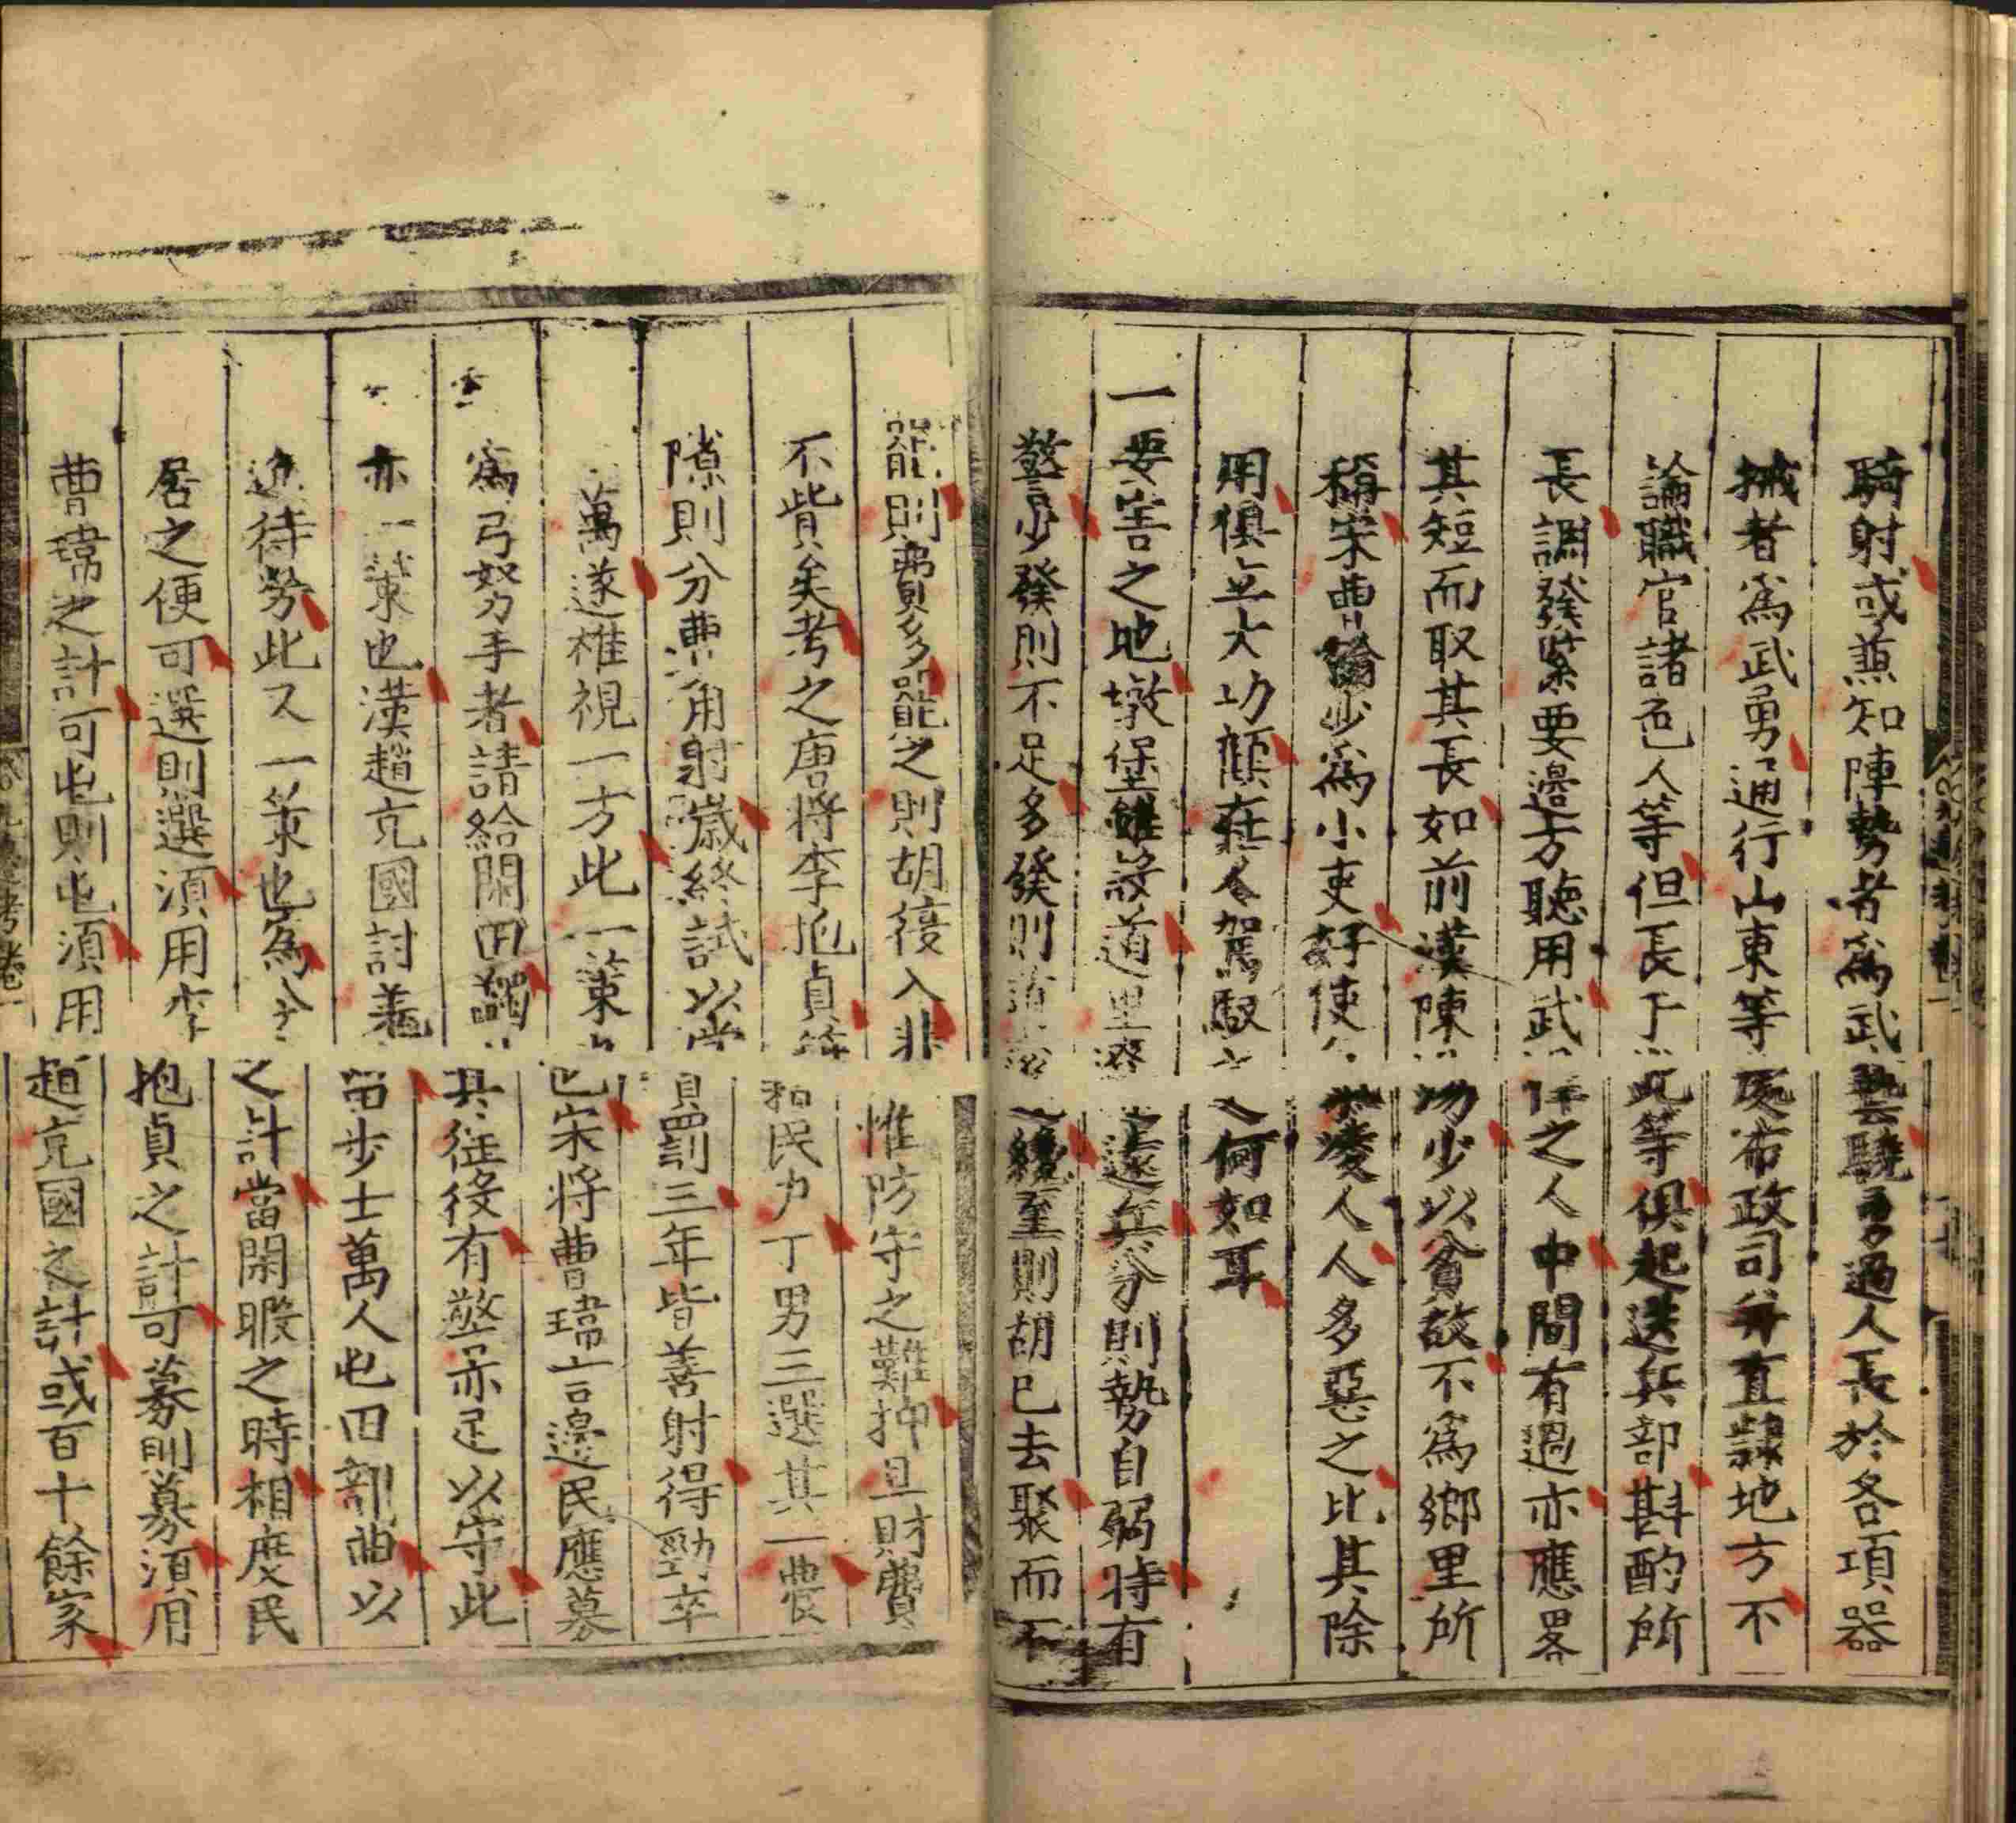 騎射或兼知陣勢者爲武藝驍勇過人長於各項器
械者爲武勇通行山東等處布政司并直隸地方不
論職官諸色人等但長于此等俱起送兵部斟酌所
長調發緊要邊方聽用武之人中間有過亦應畧
其短而取其長如前漢陳湯少以貧故不爲鄉里所
稱宋曹翰少爲小吏好使凌人人多惡之比其除
用俱立大功顧在人駕馭之何如耳
一要害之地墩堡雖設道里遼遠兵分則勢自弱時有
警少發則不足多發則纔至則胡已去聚而不
罷則費多罷之則胡復入非惟防守之難抑且財費
不貲矣考之唐將李抱貞籍民户丁男三選其一農
隙則分曹角射歲終試以賞罰三年皆善射得勁卒
萬遂雄視一方此一策也宋將曹瑋言邊民應募
爲弓弩手者請給閑田蠲其征役有警亦足以守此
亦一策也漢趙充國討羌留步士萬人屯田部曲以
逸待勞此又一策也爲今之計當閑暇之時相度民
居之便可選則選須用李抱貞之計可募則募須用
曹瑋之計可屯則屯須用趙充國之計或百十餘家